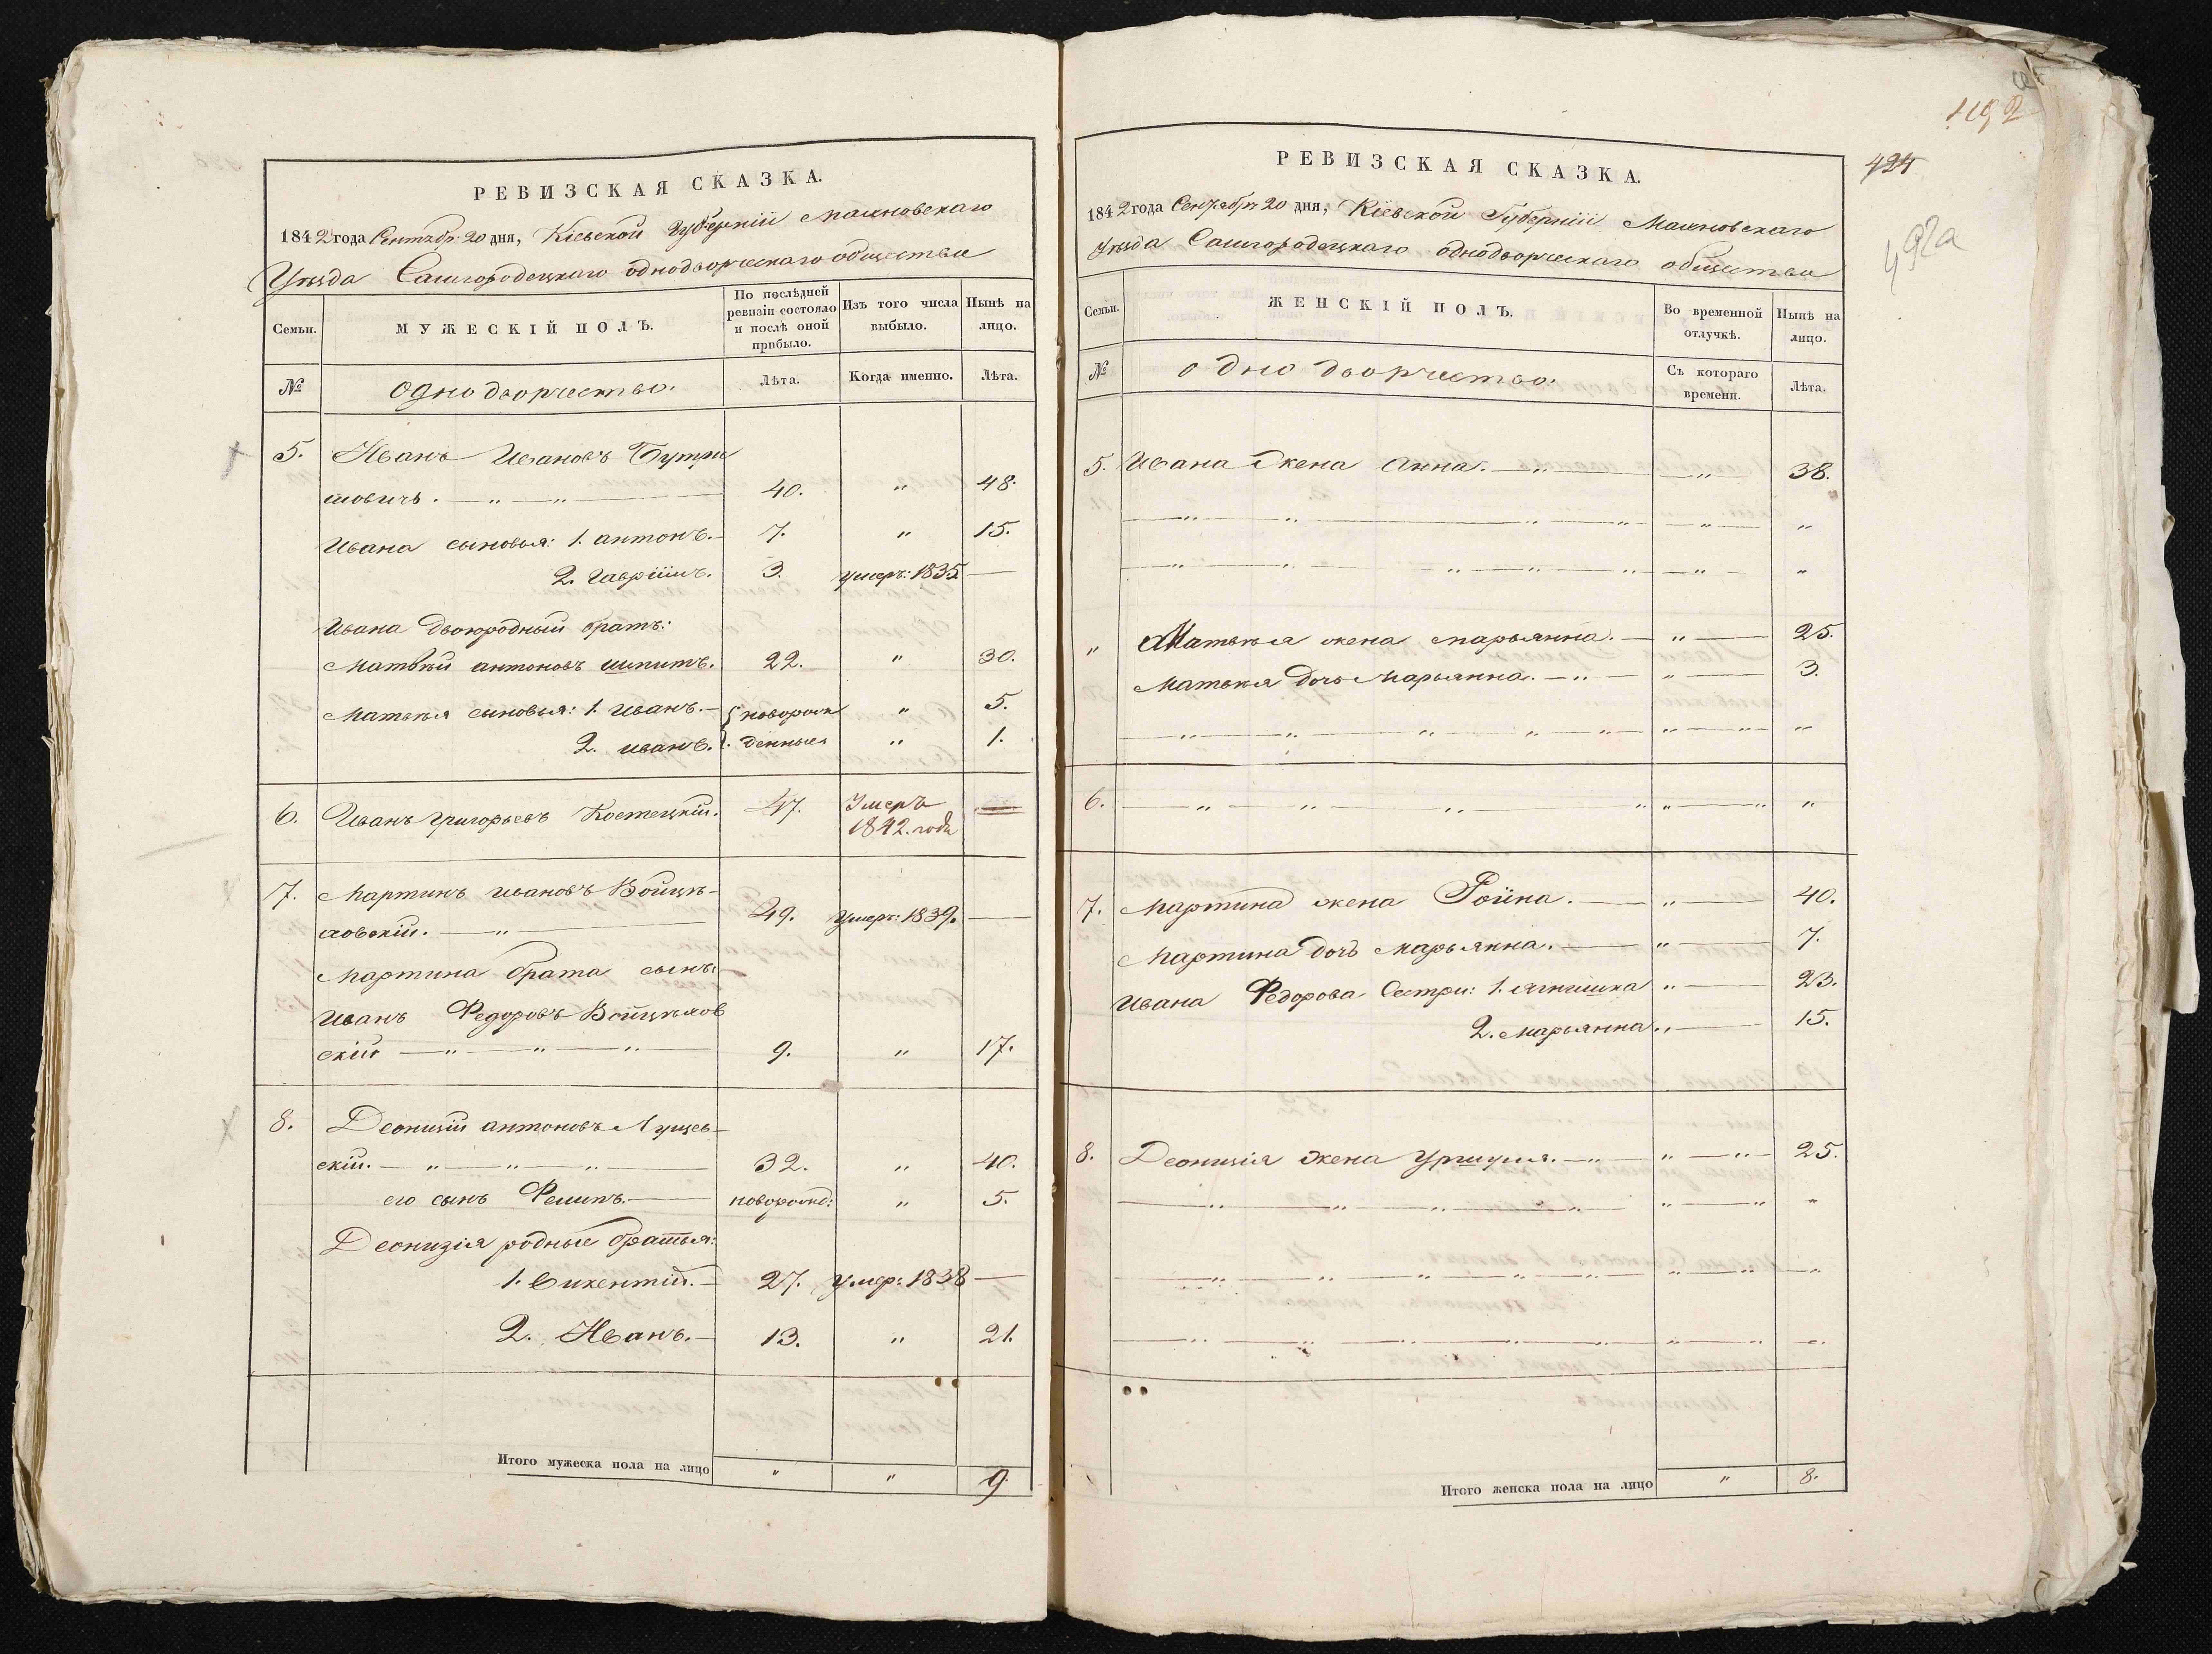 РЕВИЗСКАЯ СКАЗКА.
1842 года Сентябр: 20 дня, Кіевской Губерніи Махновскаго
Уѣзда Самгородецкаго однодворческаго общества
Семьи.
МУЖЕСКІЙ ПОЛЪ.
По послѣдней ревизіи состояло и послѣ оной прибыло.
Изъ того числа выбыло.
Нынѣ на лицо.
№
однодворчество.
Лѣта.
Когда именно.
Лѣта.
5. Иванъ Ивановъ Бутри
мовичъ. — " — " — 40. " 48.
Ивана сыновья: 1. антонъ. — 7. " 15.
2. Гавріилъ. 3. умеръ: 1835. —
Ивана двоюродный братъ:
Матвѣй антоновъ шпитъ. 22. " 30.
Матвѣя сыновья: 1. иванъ. — новорож " 5.
2. иванъ. денныя " 1.
6. Иванъ григорьевъ Костецкій. 47. Умеръ
1842. года
7. Мартинъ ивановъ Войцѣ-
ховскій. — " — 49. Умеръ: 1839. —
Мартина брата сынъ.
Иванъ Федоровъ Войцѣхов
скій — " — " — " — 9. " 17.
8. Деонизій антоновъ Лущев-
скій. — " — " — " — 32. " 40.
его сынъ Филипъ. — новорожд: " 5.
Деонизія родные братья:
1. Викентій. — 27. умер: 1838 —
2. Иванъ. — 13. " 21.
Итого мужеска пола на лицо " " 9
492
424
492а
РЕВИЗСКАЯ СКАЗКА.
1842 года Сентября 20 дня, Кіевской Губерніи Махновскаго
Уѣзда Самгородецкаго однодворческаго общества
Семьи.
ЖЕНСКІЙ ПОЛЪ.
Во временной отлучкѣ.
Нынѣ на лицо.
№
однодворчество.
Съ котораго времени.
Лѣта.
5. Ивана жена Анна. — " — " — 38.
" Матвѣя жена марьянна. — " — 25.
Матвѣя дочь Марьянна. — " — " — 3.
6. — " — " — " " — " "
7. Мартина жена Роина. — " — 40.
Мартина дочь марьянна. — " — 7.
Ивана Федорова Сестри: 1. " — 23.
2. марьянна. " — 15.
8. Деонизія жена Уршуля. — " — " — " — 25.
Итого женска пола на лицо " 8.